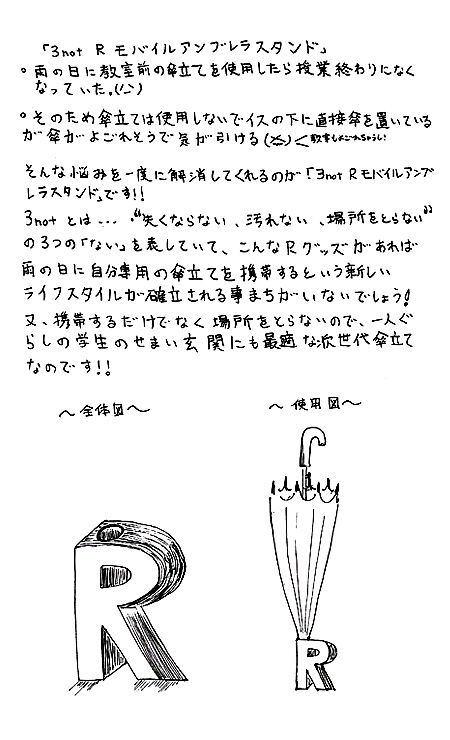 「3not R モバイルアンブレラスタンド」
○ 雨の日に教室前の傘立てを使用したら授業終わりになく
なっていた。(;_;)
○ そのため傘立ては使用しないでイスの下に直接傘を置いている
が傘がよごれそうで気が引ける(>_<)<教室もよごれちゃう!
そんな悩みを一度に解消してくれるのが「3not Rモバイルアンブ
レラスタンド」です!!
3notとは… "失くならない、汚れない、場所をとらない"
の3つの「ない」を表していて、こんなRグッズがあれば
雨の日に自分専用の傘立てを携帯するという新しい
ライフスタイルが確立される事まちがいないでしょう!
又、携帯するだけでなく場所をとらないので、一人ぐ
らしの学生のせまい玄関にも最適な次世代傘立て
なのです!!
～全体図～
～使用図～
R
R